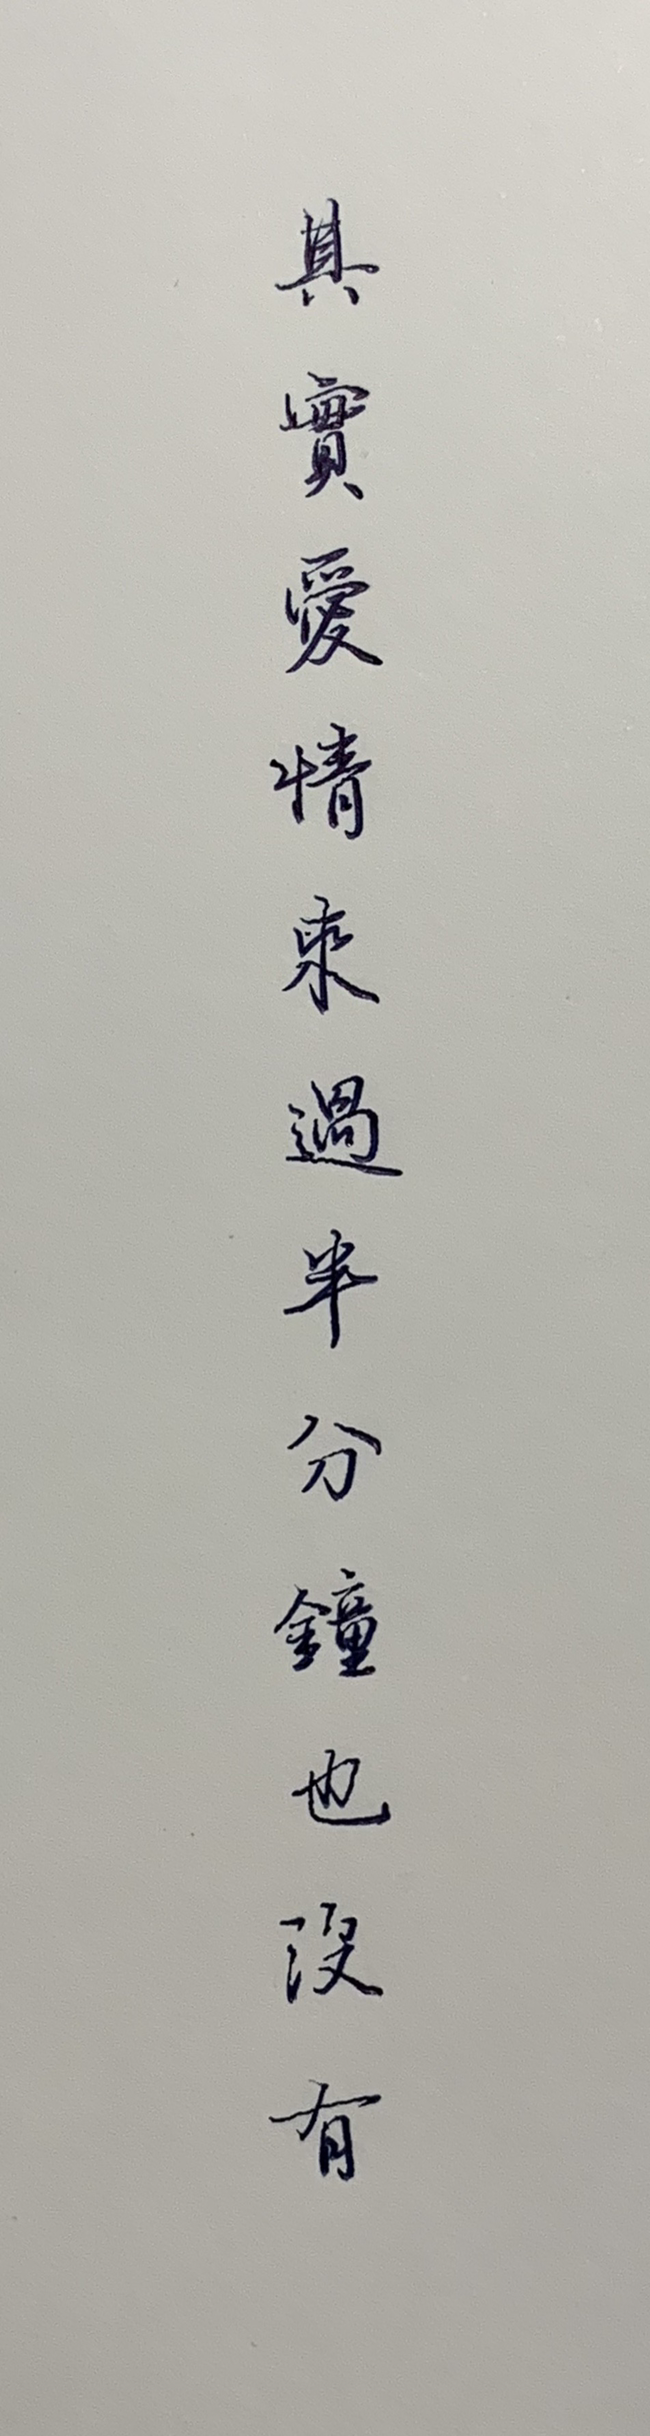 其實愛情來過半分鐘也沒有